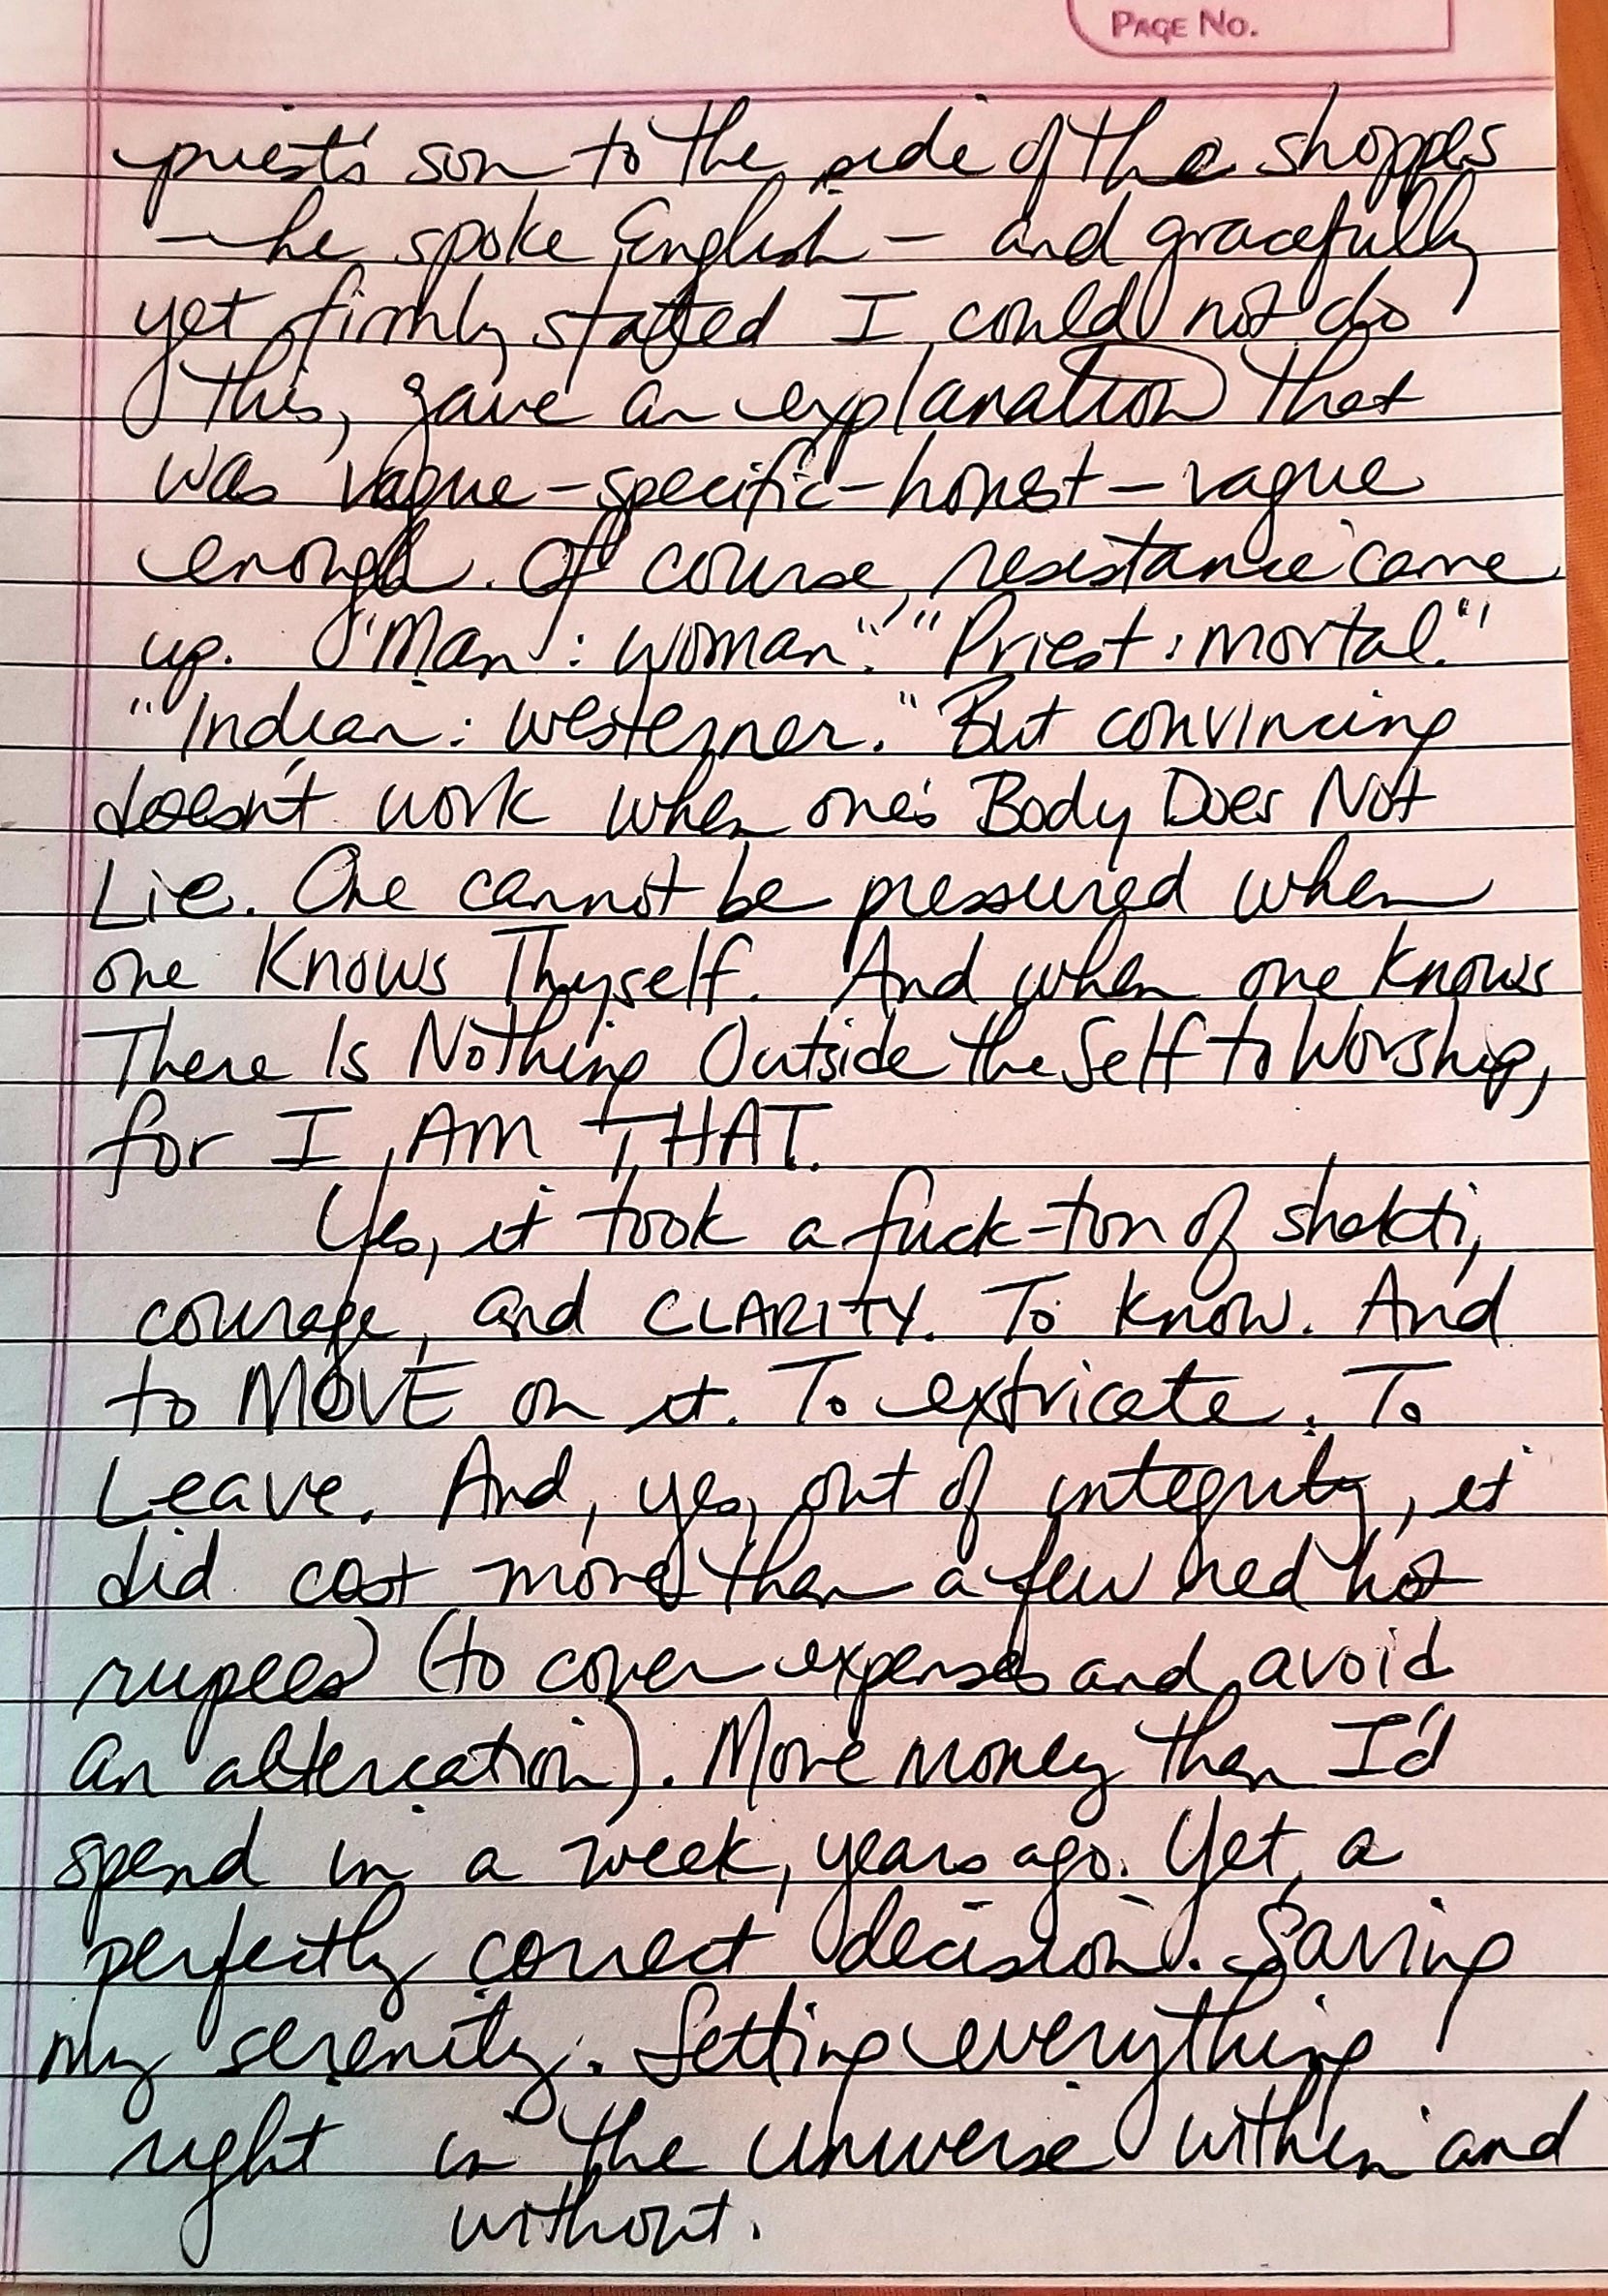 PAGE NO.
priest's son to the side of the shoppes
— he spoke English — and gracefully
yet firmly stated I could not do
this, gave an explanation that
was vague-specific-honest-vague
enough. Of course, resistance came
up. "Man : woman." "Priest : mortal."
"Indian : westerner." But convincing
doesn't work when one's Body Does Not
Lie. One cannot be pressured when
one Knows Thyself. And when one knows
There Is Nothing Outside the Self to Worship,
for I AM THAT.
Yes, it took a fuck-ton of shakti,
courage, and CLARITY. To Know. And
to MOVE on it. To extricate. To
Leave. And, yes, out of integrity, it
did cost more than a few red hot
rupees (to cover expenses and avoid
an altercation). More money than I'd
spend in a week, years ago. Yet, a
perfectly correct decision. Saving
my serenity. Setting everything
right in the universe within and
without.